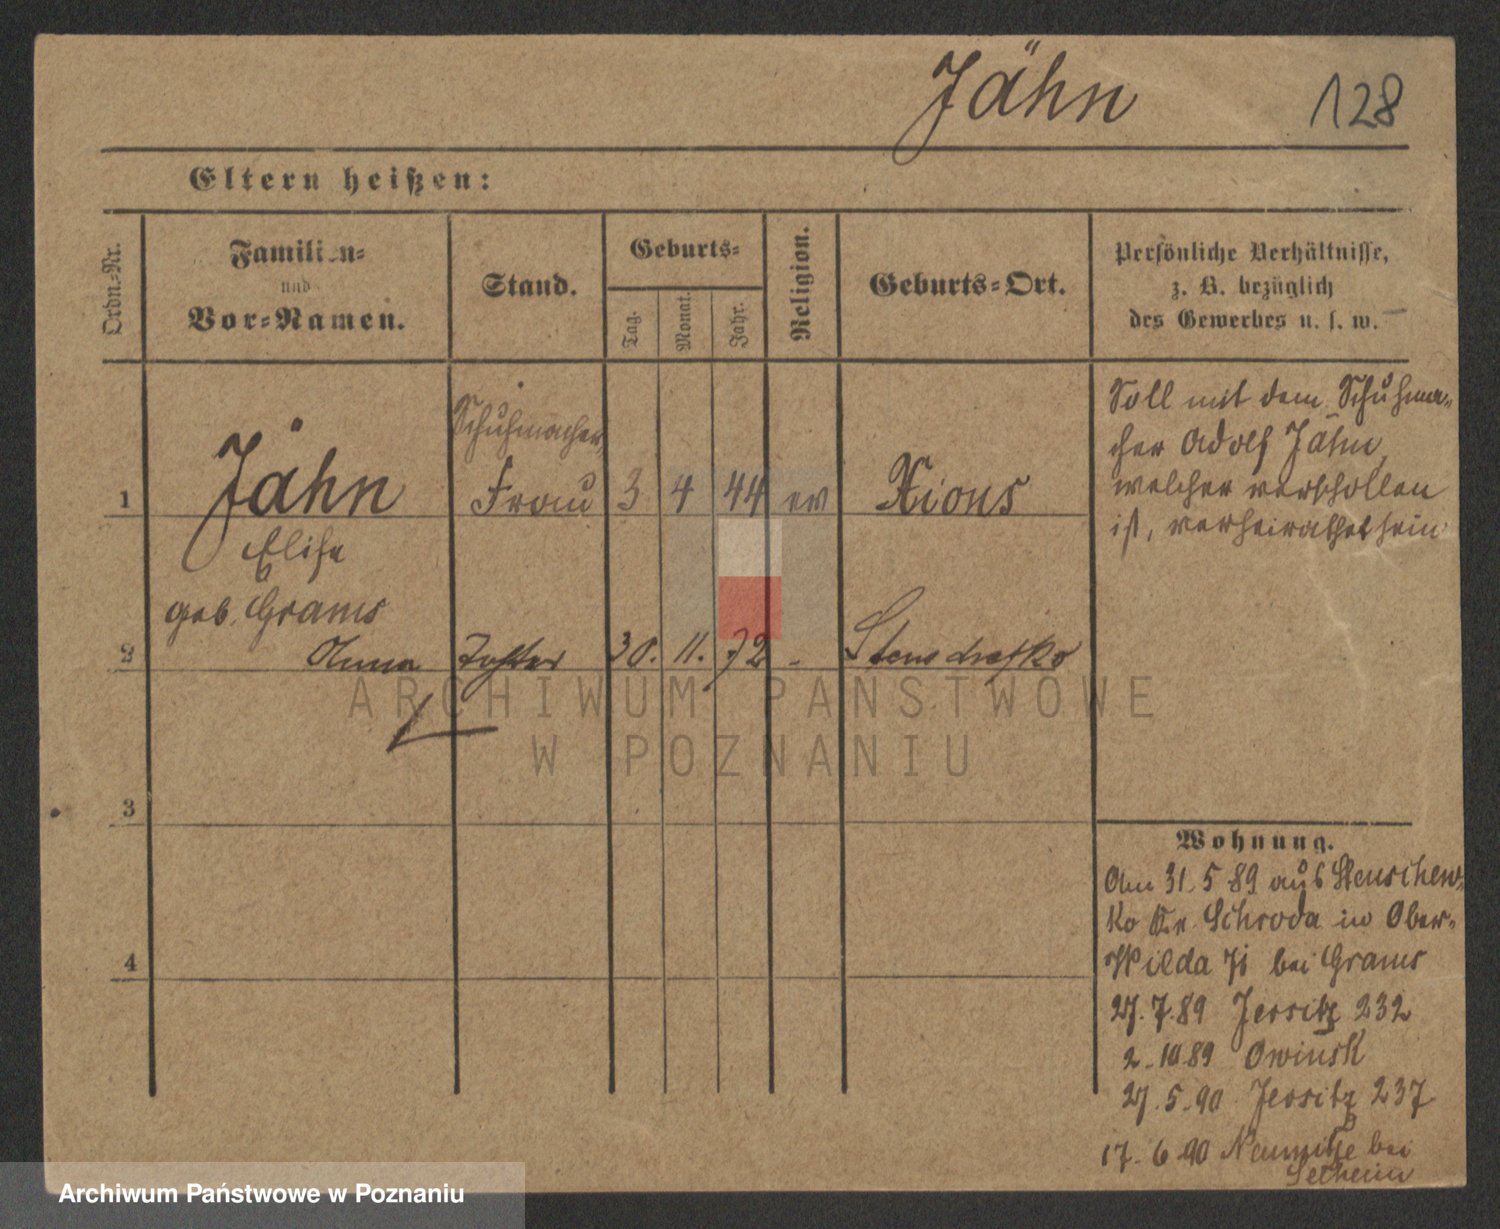 Jähn 128
Eltern heißen:
Ordn.-Nr.
Familien-
und
Vor-Namen.
Stand.
Geburts-
Tag.
Monat.
Jahr.
Religion.
Geburts-Ort.
Persönliche Verhältnisse,
z. B. bezüglich
des Gewerbes u. s. w.
Schuhmacher
1 Jähn Frau 3 4 44 ev Xions
Elise
geb. Grams
2 Anna Tochter 30. 11. 72 -
3
4
Soll mit dem Schuhma-
cher Adolf Jähn,
welcher verschollen
ist, verheirathet sein
Wohnung.
Am 31. 5 89 aus Stenschew-
ko Kr. Schroda in Ober-
Wilda 71 bei Grams
27. 7. 89 Jersitz 232
2. 10 89 Owinsk
27. 5. 90 Jersitz 237
17. 6 90 bei
ARCHIWUM PAŃSTWOWE
W POZNANIU
Archiwum Państwowe w Poznaniu